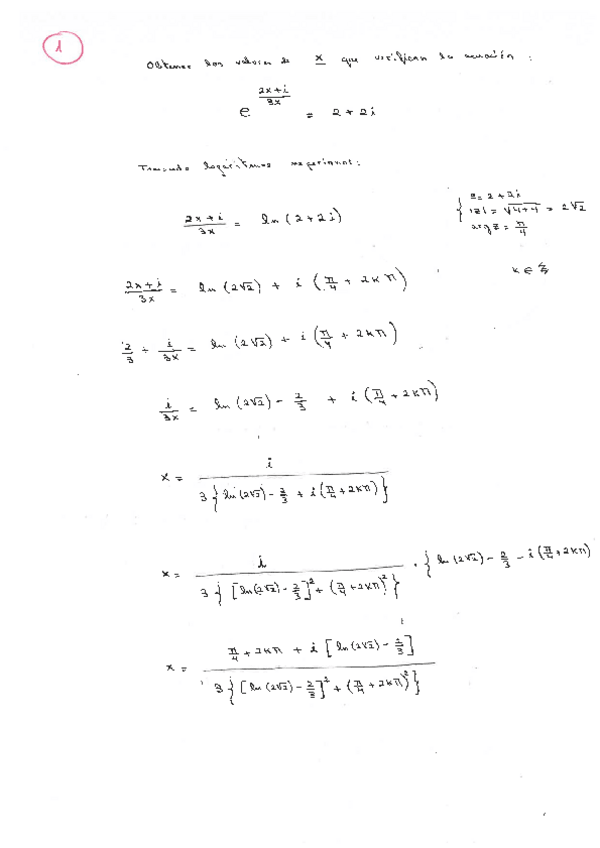 1
Obtener los valores de x que verifican la ecuación:
e^((2x+i)/3x) = 2+2i
Tomando logaritmos neperianos:
(2x+i)/3x = ln(2+2i)
{ z = 2+2i
|z| = √(4+4) = 2√2
arg z = π/4
(2x+i)/3x = ln(2√2) + i(π/4 + 2kπ)
k ∈ ℤ
2/3 + i/3x = ln(2√2) + i(π/4 + 2kπ)
i/3x = ln(2√2) - 2/3 + i(π/4 + 2kπ)
x = i / 3{ln(2√2) - 2/3 + i(π/4 + 2kπ)}
x = i / 3{[ln(2√2) - 2/3]² + (π/4 + 2kπ)²} · {ln(2√2) - 2/3 - i(π/4 + 2kπ)
x = π/4 + 2kπ + i[ln(2√2) - 2/3] / 3{[ln(2√2) - 2/3]² + (π/4 + 2kπ)²}